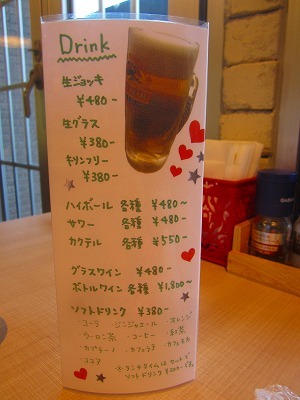 Drink
生ジョッキ
¥480-
生グラス
¥380-
キリンフリー
¥380-
ハイボール 各種 ¥480~
サワー 各種 ¥480-
カクテル 各種 ¥550-
グラスワイン ¥480-
ボトルワイン 各種 ¥1,800~
ソフトドリンク ¥380-
・コーラ ・ジンジャエール ・オレンジ
・ウーロン茶 ・コーヒー ・紅茶
・カプチーノ ・カフェラテ ・カフェモカ
・ココア
※ランチタイムはセットで
ソフトドリンク ¥200-です。